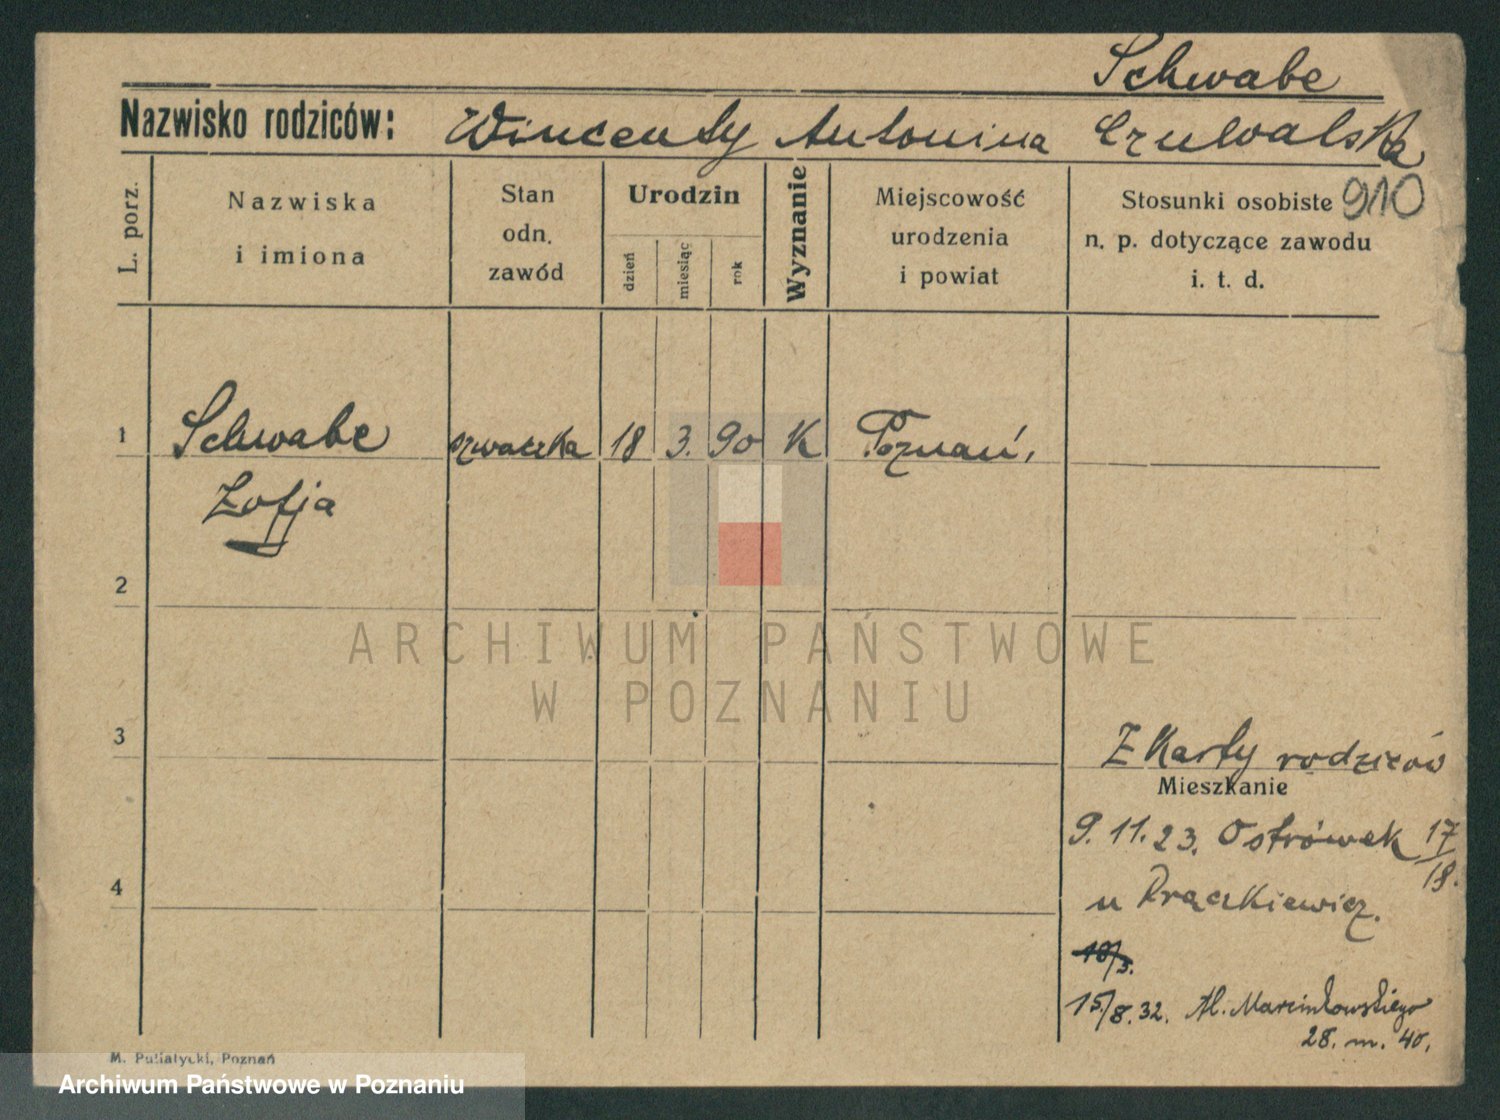 Schwabe
Nazwisko rodziców: Wincenty Antonina Czuwalska
L. porz.
Nazwiska i imiona
Stan odn. zawód
Urodzin
dzień
miesiąc
rok
Wyznanie
Miejscowość urodzenia i powiat
Stosunki osobiste n. p. dotyczące zawodu i. t. d.
910
1 Schwabe szwaczka 18 3. 90 K Poznań,
Zofja
2
3
4
Z Karty rodziców
Mieszkanie
9. 11. 23. Ostrówek 17/18.
u Prączkiewicz.
10/3.
15/8. 32. Al. Marcinkowskiego
28. m. 40.
M. Putiatycki, Poznań
ARCHIWUM PAŃSTWOWE
W POZNANIU
Archiwum Państwowe w Poznaniu